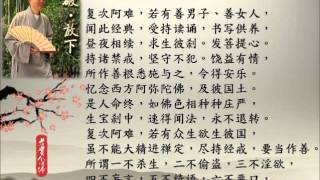 破·放下
复次阿难，若有善男子、善女人，
闻此经典，受持读诵，书写供养，
昼夜相续，求生彼刹。发菩提心。
持诸禁戒，坚守不犯。饶益有情，
所作善根悉施与之，令得安乐。
忆念西方阿弥陀佛，及彼国土。
是人命终，如佛色相种种庄严，
生宝刹中，速得闻法，永不退转。
复次阿难，若有众生欲生彼国，
虽不能大精进禅定，尽持经戒，要当作善。
所谓一不杀生，二不偷盗，三不淫欲，
四不妄言，五不绮语，六不恶口，